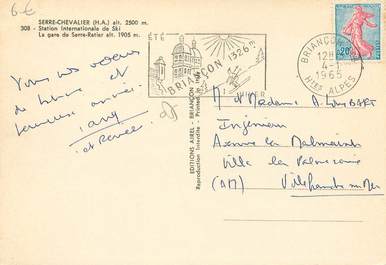 6€
SERRE-CHEVALIER (H.A.) alt. 2500 m.
308 - Station Internationale de Ski
La gare de Serre-Ratier alt. 1905 m.
ÉTÉ
BRIANÇON 1326m
HIVER
BRIANÇON
12H
4-1
1965
Htes ALPES
0,20
Tous nos vœux
de bonne et
heureuse année.
et Renée
EDITIONS AIREL - BRIANÇON
Reproduction Interdite - Printed in
M. et Madame A.
Ingénieur
Avenue
Villa la
(AM) Villefranche sur Mer